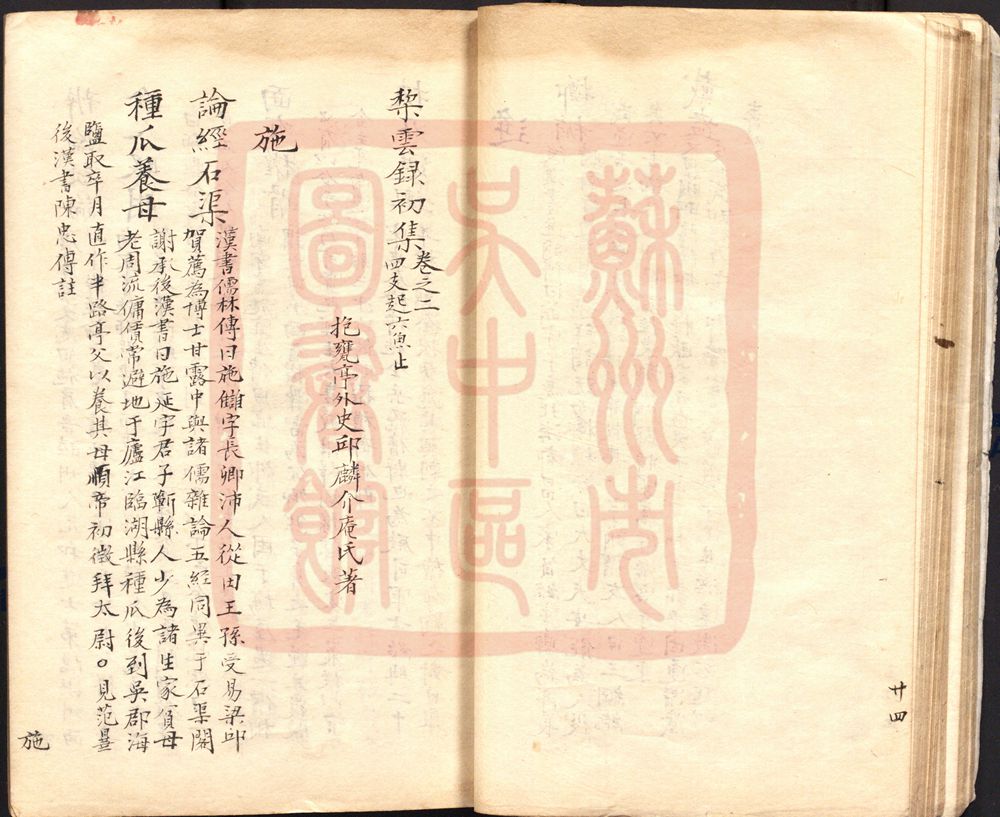 廿四
棃雲録初集卷之二
四支起六魚止
抱甕亭外史邱麟介庵氏著
施
論經石渠
漢書儒林傳曰施讎字長卿沛人從田王孫受易梁邱
賀薦為博士甘露中與諸儒雜論五經同異于石渠閣
種瓜養母
謝承後漢書曰施延字君子蘄縣人少為諸生家貧母
老周流傭賃常避地于廬江臨湖縣種瓜後到吳郡海
鹽取卒月直作半路亭父以養其母順帝初徵拜太尉○見范曅
後漢書陳忠傳註
施
蘇州市
吳中區
圖書館